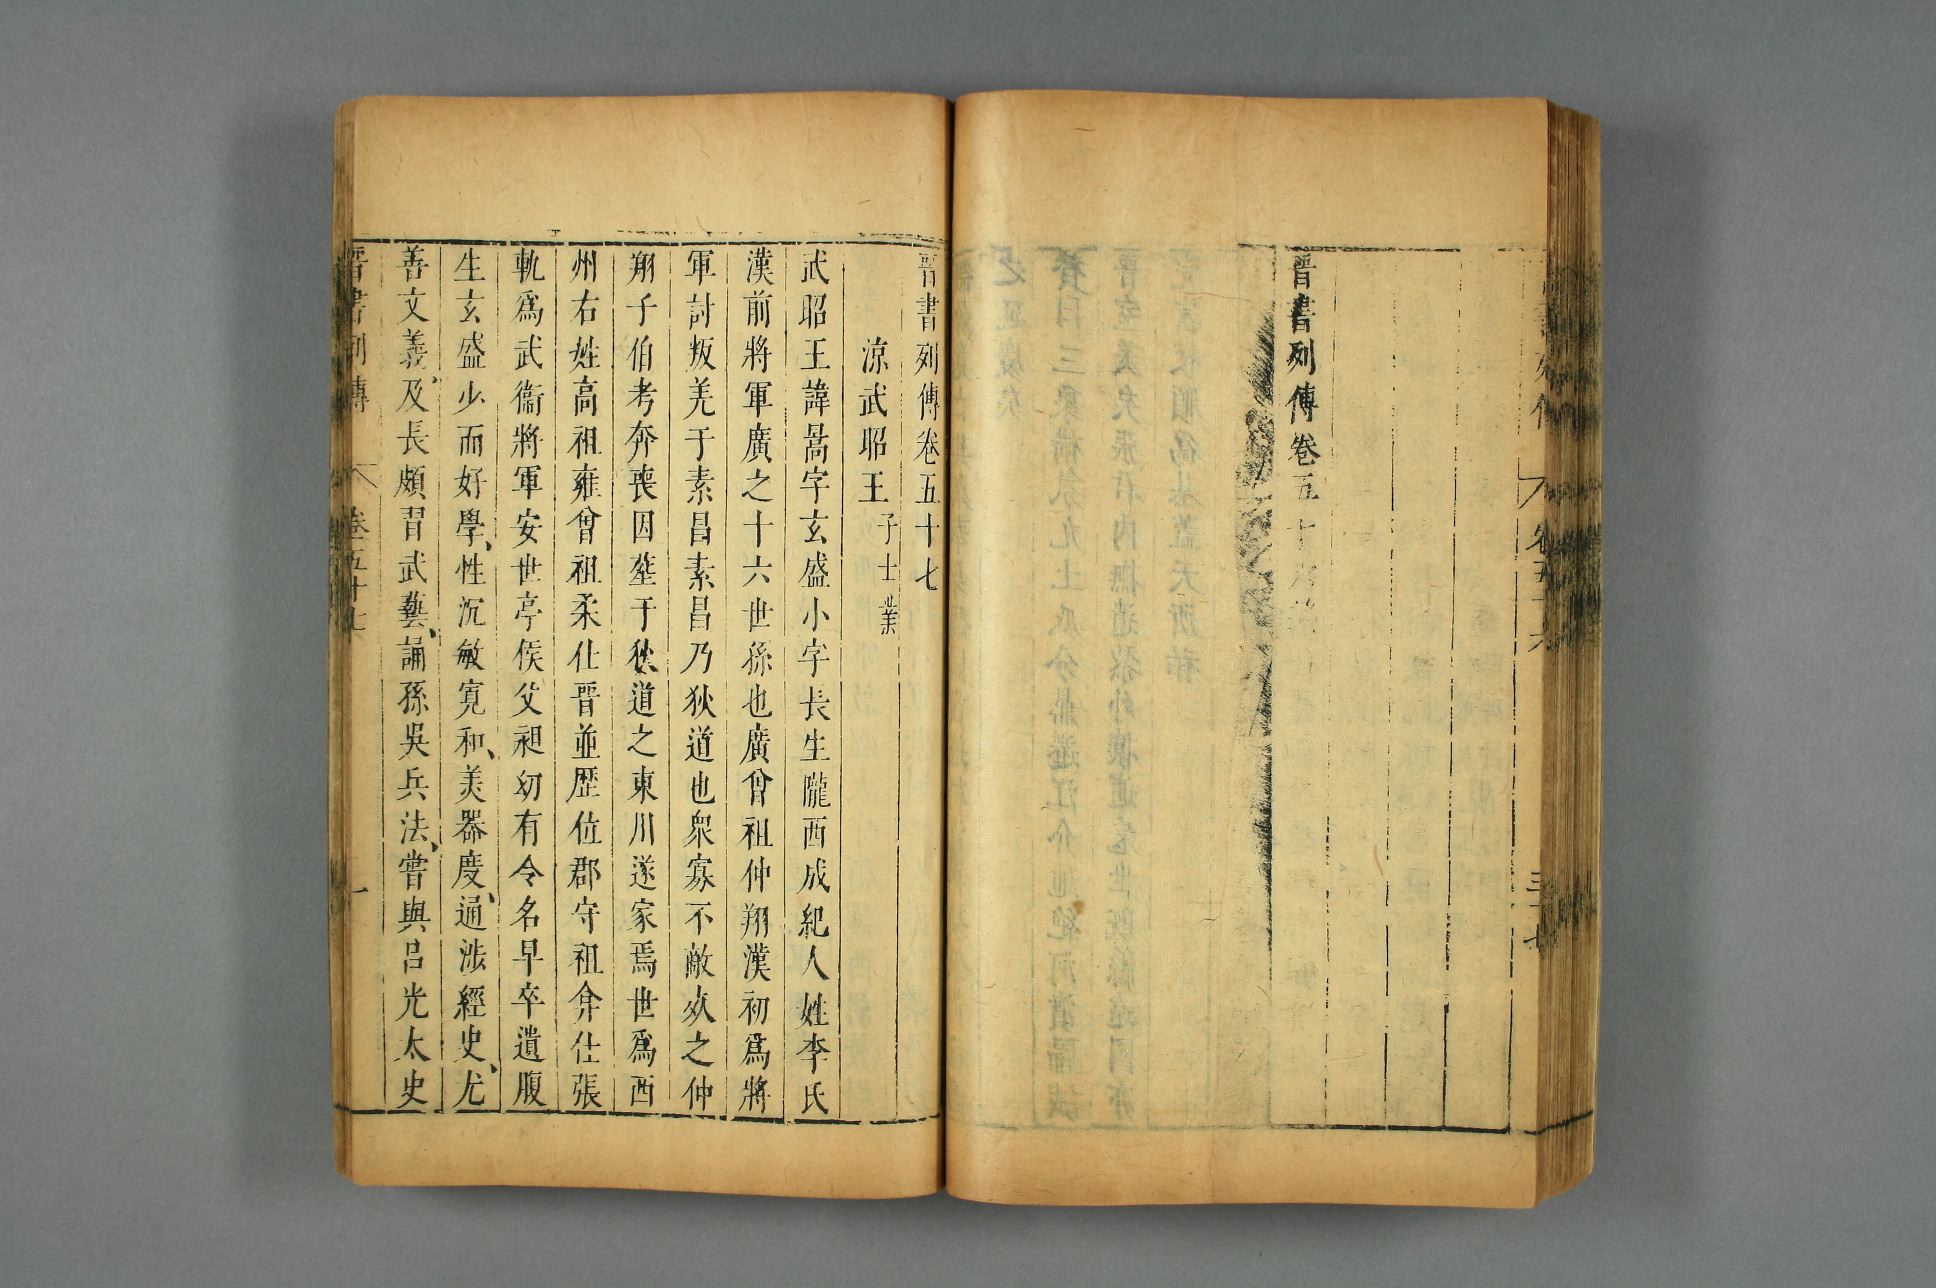 晉書列傳卷五十六
晉書列傳卷五十七
涼武昭王子士業
武昭王諱暠字玄盛小字長生隴西成紀人姓李氏
漢前將軍廣之十六世孫也廣曾祖仲翔漢初爲將
軍討叛羌于素昌素昌乃狄道也衆寡不敵死之仲
翔子伯考奔喪因塟于狄道之東川遂家焉世爲西
州右姓高祖雍曾祖柔仕晉並歷位郡守祖弇仕張
軌爲武衞將軍安世亭侯父昶幼有令名早卒遺腹
生玄盛少而好學、性沉敏寬和、美器度、通涉經史、尤
善文義、及長頗習武藝、誦孫吳兵法、嘗與呂光太史
晉書列傳 卷五十七 一